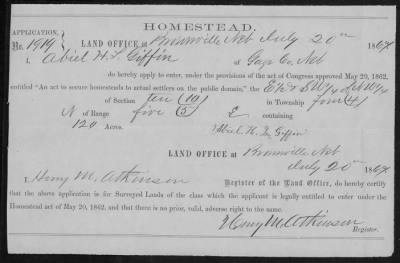 HOMESTEAD.
APPLICATION,
No. 1919
LAND OFFICE at Brownville Neb July 20th 1867
I, Abiel H. S. Giffin of Gage Co. Neb
do hereby apply to enter, under the provisions of the act of Congress approved May 20, 1862,
entitled "An act to secure homesteads to actual settlers on the public domain," the E½ SW¼
of Section ten (10) in Township four (4)
N of Range five (5) E containing
120 Acres.
Abiel H. S. Giffin
LAND OFFICE at Brownville Neb
July 20th 1867
I, Henry M. Atkinson Register of the Land Office, do hereby certify
that the above application is for Surveyed Lands of the class which the applicant is legally entitled to enter under the
Homestead act of May 20, 1862, and that there is no prior, valid, adverse right to the same.
Henry M. Atkinson
Register.